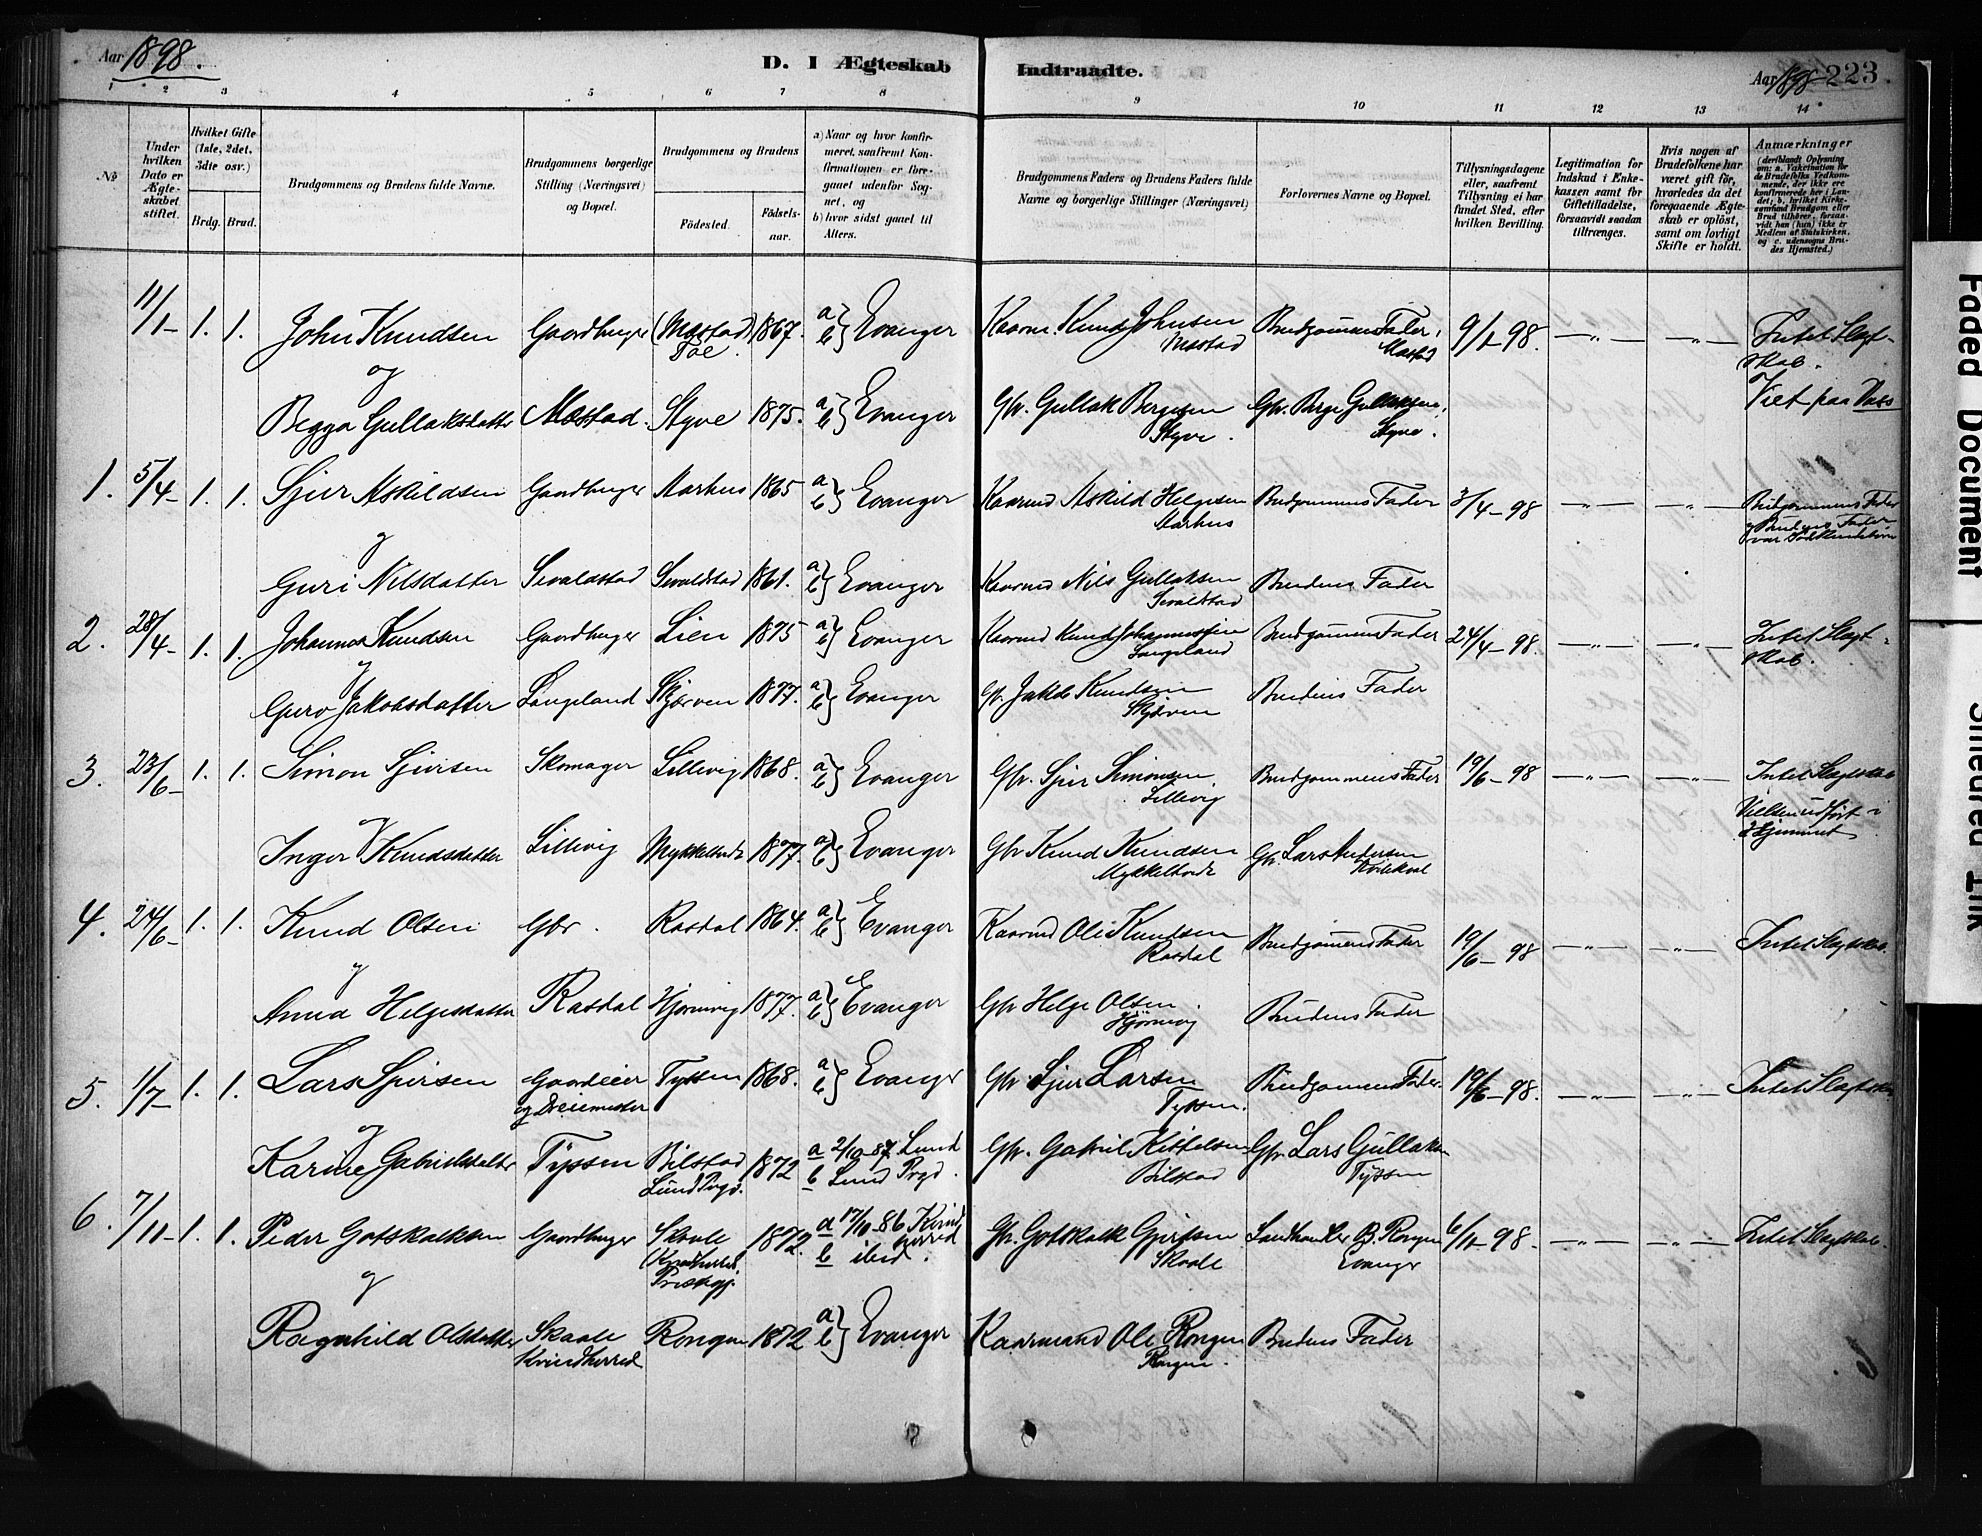 Aar 1898.
D. I Ægteskab
Indtraadte.
Aar 1898 223.
1 2 3 4 5 6 7 8 9 10 11 12 13 14
No
Under hvilken Dato er Ægteskabet stiftet.
Hvilket Gifte (1ste, 2det, 3die osv.)
Brdg. Brud.
Brudgommens og Brudens fulde Navne.
Brudgommens borgerlige Stilling (Næringsvei) og Bopæl.
Brudgommens og Brudens
Fødested.
Fødselsaar.
a) Naar og hvor konfirmeret, saafremt Konfirmationen er foregaaet udenfor Sognet, og
b) hvor sidst gaaet til Alters.
Brudgommens Faders og Brudens Faders fulde Navne og borgerlige Stillinger (Næringsvei)
Forlovernes Navne og Bopæl.
Tillysningsdagene eller, saafremt Tillysning ei har fundet Sted, efter hvilken Bevilling.
Legitimation for Indskud i Enkekassen samt for Giftetilladelse, forsaavidt saadan tiltrænges.
Hvis nogen af Brudefolkene har været gift før, hvorledes da det foregaaende Ægteskab er opløst, samt om lovligt Skifte er holdt.
Anmærkninger
11/1- 1. 1. John Knudsen Gaardbruger (Mæstad) Toe. 1867. a b } Evanger Kaarm. Knud Johnsen Mæstad Brudgommens Fader, Mæstad 9/1-98. —„— —„— Intet Slægtskab.
og
Begga Gullaksdatter Mæstad. Styve 1875. a b } Evanger Gbr. Gullak Bergesen Styve. Gbr. Berge Gullaksen, Styve. Viet paa Voss
1. 5/4- 1. 1. Sjur Askildsen Gaardbruger Aarhus 1865 a b } Evanger Kaarmd Askild Helgesen Aarhus Brudgommens Fader 3/4-98 —„— —„— Brudgommens Fader og Brudens Fader var
og
Guri Nilsdatter Sevaldstad Sevaldstad 1861. a b } Evanger Kaarmd Nils Gullaksen Sevaldstad Brudens Fader
2. 28/4- 1. 1. Johannes Knudsen Gaardbruger Lien 1875 a b } Evanger Kaarmd Knud Johannessen Langeland Brudgommens Fader 24/4-98. —„— —„— Intet Slægtskab.
og
Guro Jakobsdatter Langeland Skjerven 1877. a b } Evanger Gbr. Jakob Knudsen Skjerven Brudens Fader
3. 23/6- 1. 1. Simon Sjursen Skomager Lillevig 1868. a b } Evanger Gbr. Sjur Simonsen Lillevig Brudgommens Fader 19/6-98 —„— —„— Intet Slægtskab
og
Inger Knudsdatter Lillevig Mykkeltvedt 1877. a b } Evanger Gbr Knud Knudsen Mykkeltvedt Gbr. Lars Andersen Vielsen udført i Hjemmet
4. 24/6- 1. 1. Knud Olsen Gbr. Rasdal 1864. a b } Evanger Kaarmd Ole Knudsen Rasdal Brudgommens Fader 19/6-98 —„— —„— Intet Slægtskab.
og
Anna Helgesdatter Rasdal Hjørnevig 1877. a b } Evanger Gbr Helge Olsen Hjørnevig Brudens Fader
5. 1/7- 1. 1. Lars Sjursen Gaardeier og Dreiemester Tyssen 1868. a b } Evanger Gbr. Sjur Larsen Tyssen. Brudgommens Fader 19/6-98. —„— —„— Intet Slægtskab
og
Karine Gabrielsdatter Tyssen Bilstad Lund Prgd. 1872 a 2/10-87 Lund b Lund Prgd. Gbr. Gabriel Kittelsen Bilstad Gbr. Lars Gullaksen Tyssen
6. 7/11- 1. 1. Peder Gotskalksen Gaardbruger Skaale (Kvindherred) Præstegj. 1872. a 17/10-86 Kvindherred b ibid. Gbr. Gotskalk Gjertsen Skaale Landhandler B. Rongen Evanger 6/11-98. —„— —„— Intet Slægtskab.
og
Ragnhild Olsdatter Skaale Kvindherred Rongen 1872 a b } Evanger Kaarmand Ole Rongen Rongen. Brudens Fader
Faded Document
Smeared Ink